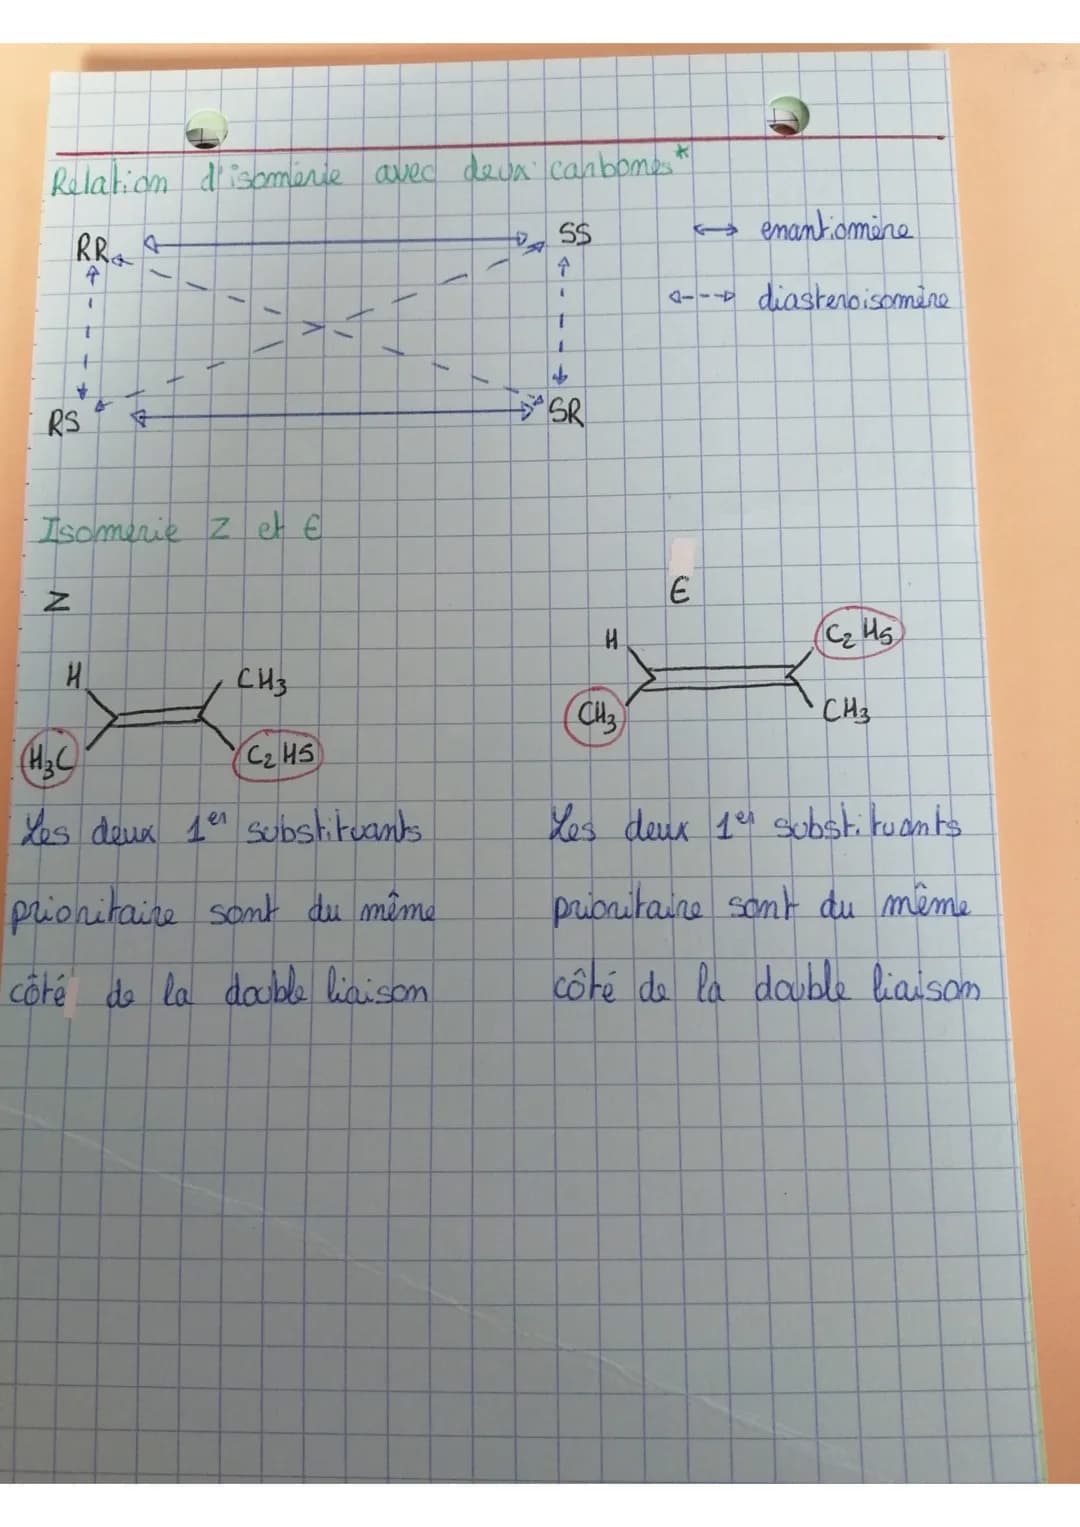 Relation d'isomérie avec deux carbones*
RR SS ↔ enantiomère
diasteroisomère
RS SR
Isomerie Z et E
Z E
H CH3
H3C C2H5
H C2H5
CH3 CH3
Les deux 1er substituants
prioritaire sont du même
côté de la double liaison
Les deux 1er substituants
prioritaire sont du même
côté de la double liaison